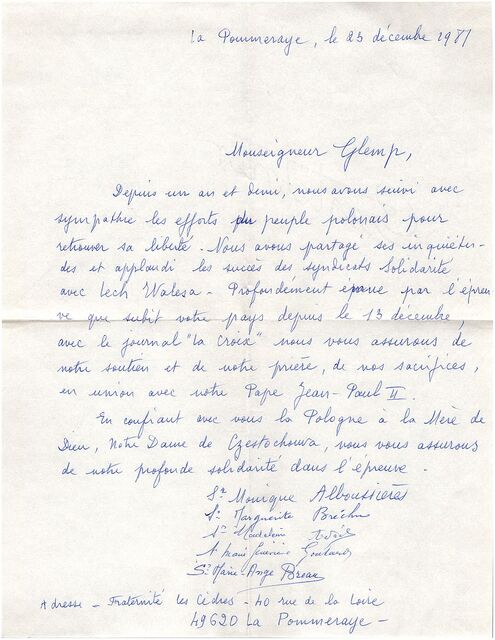 La Pommeraye, le 23 décembre 1981
Monseigneur Glemp,
Depuis un an et demi, nous avons suivi avec
sympathie les efforts du peuple polonais pour
retrouver sa liberté. Nous avons partagé ses inquiétu-
des et applaudi les succès des syndicats Solidarité
avec Lech Walesa - Profondément émue par l'épreu
ve que subit votre pays depuis le 13 décembre,
avec le journal "La Croix" nous vous assurons de
notre soutien et de notre prière, de nos sacrifices,
en union avec notre Pape Jean-Paul II.
En confiant avec vous la Pologne à la Mère de
Dieu, Notre Dame de Czestochowa, nous vous assurons
de notre profonde solidarité dans l'épreuve.
Sr Monique Alboussières
Sr Marguerite
Sr Madeleine
Sr Marie
Sr Marie-Ange Breau
Adresse - Fraternité les Cèdres - 40 rue de la Loire
49620 La Pommeraye -